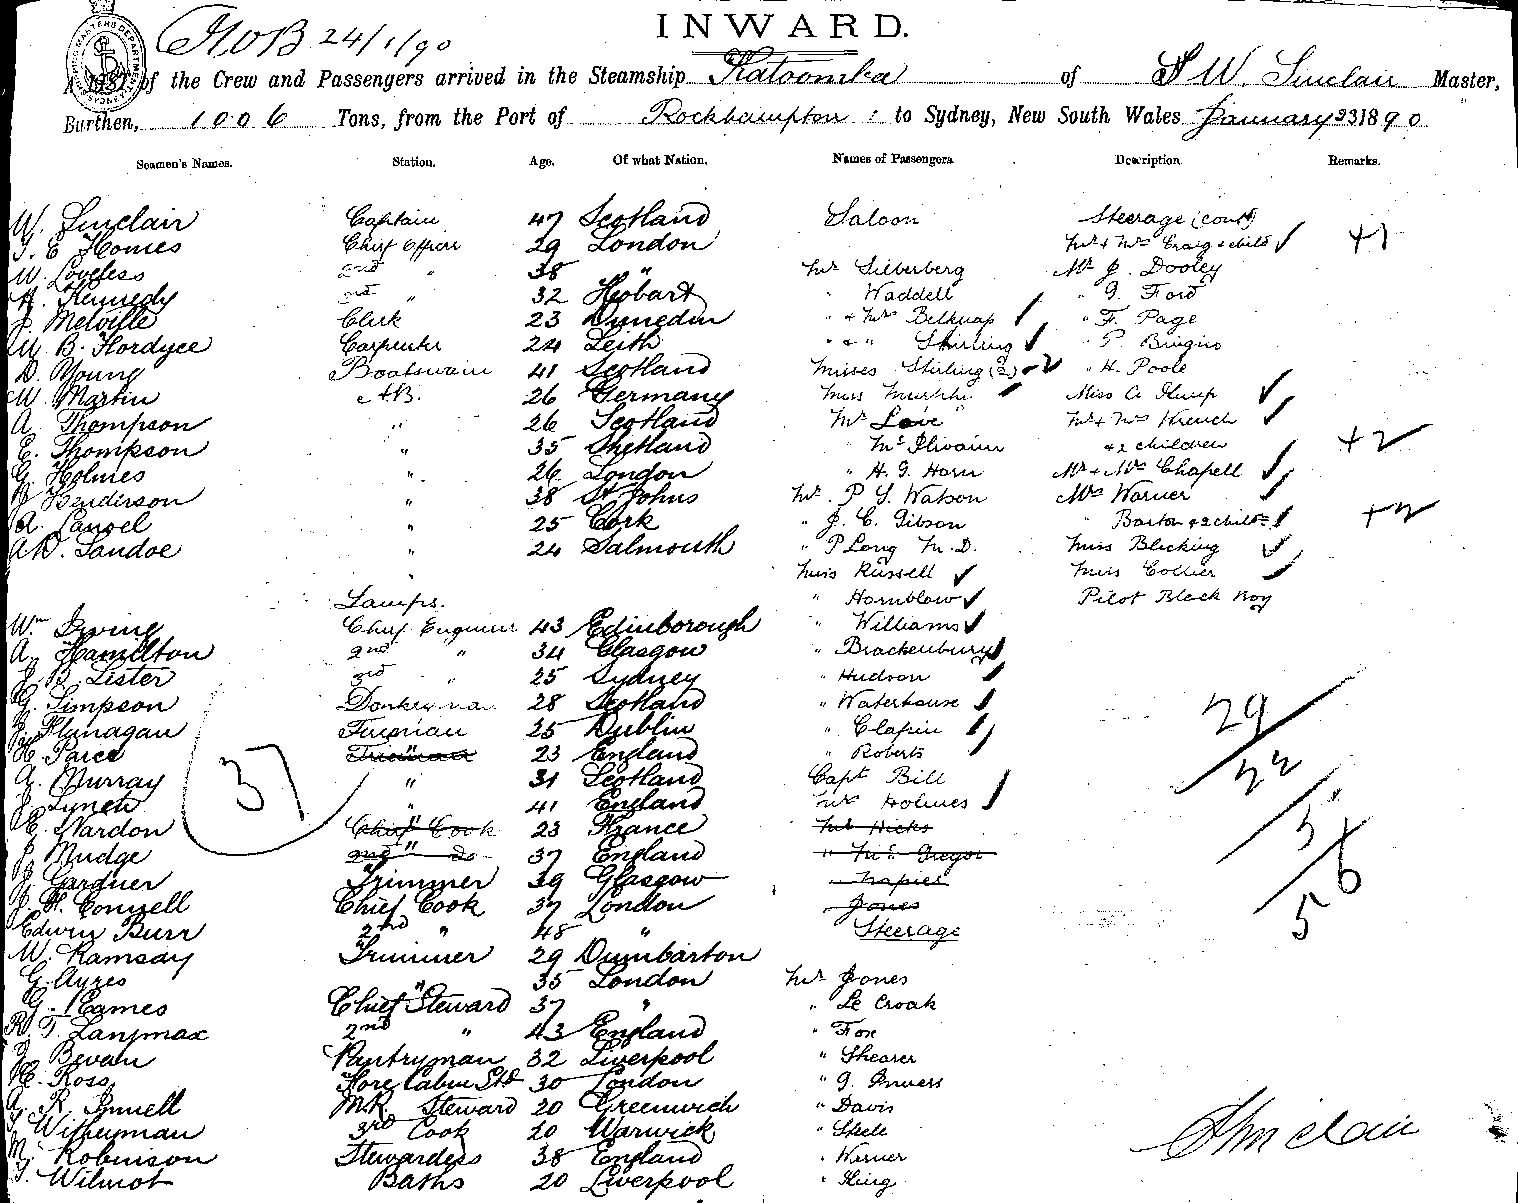 24/1/90
INWARD.
A LIST of the Crew and Passengers arrived in the Steamship Katoomba of W. Sinclair Master,
Burthen, 1006 Tons, from the Port of Rockhampton to Sydney, New South Wales January 23 1890
Seamen's Names. Station. Age. Of what Nation. Names of Passengers. Description. Remarks.
W. Sinclair Captain 47 Scotland Saloon Steerage (cont)
Homes Chief Officer 29 London Mr & Mrs Craig & child +1
W. Loveless 2nd " 38 " Mr Silberberg Mr J. Dooley
Kennedy 3rd " 32 Hobart " Waddell " G. Ford
J. Melville Clerk 23 Dunedin " & Mrs Belknap " F. Page
W. B. Fordyce Carpenter 24 Leith " & " Stirling
D. Young Boatswain 41 Scotland Misses Stirling (2) 2 " H. Poole
W. Martin A.B. 26 Germany Miss Murphy Miss
A. Thompson " 26 Scotland Mr Love Mr & Mrs French
E. Thompson " 35 Shetland " & 2 children +2
G. Holmes " 26 London " H. G. Horn Mr & Mrs Chapell
J. Henderson " 38 St Johns Mr P. S. Watson Mrs Warner
A. 25 Cork " J. C. Gibson " Barton & 2 child +2
Sandoe " 24 Falmouth " P Long M.D. Miss Blicking
" Miss Russell Miss Collier
Lamps. " Hornblow Pilot Black Boy
Wm Irving Chief Engineer 43 Edinborough " Williams
A. Hamilton 2nd " 34 Glasgow " Brackenbury
J. B. Lister 3rd " 25 Sydney " Hudson
G. Simpson Donkeyman 28 Scotland " Waterhouse 29
Flanagan Fireman 25 Dublin " Clapin
H. Parce Fireman 23 England " Roberts
A. Murray " 31 Scotland Capt Bill 22
37
J. Lynch " 41 England Mrs Holmes
E. Nardon Chief Cook 23 France Mr Hicks 5
J. Mudge 2nd do 37 England " McGregor
J. Gardner Trimmer 39 Glasgow " Napier
H. Connell Chief Cook 37 London " Jones 56
Edwin Burr 2nd " 48 " Steerage
W. Ramsay Trimmer 29 Dumbarton
G. Ayres " 35 London Mr Jones
G. Eames Chief Steward 37 " " Le Croak
2nd " 43 England " Fox
Bevan Pantryman 32 Liverpool " Shearer
Ross Fore Cabin Std 30 London
M.R. Steward 20 Greenwich " Davis
Witheyman 3rd Cook 20 Warwick
M. Robinson Stewardess 38 England " Werner
Wilmot Baths 20 Liverpool " King
Sinclair